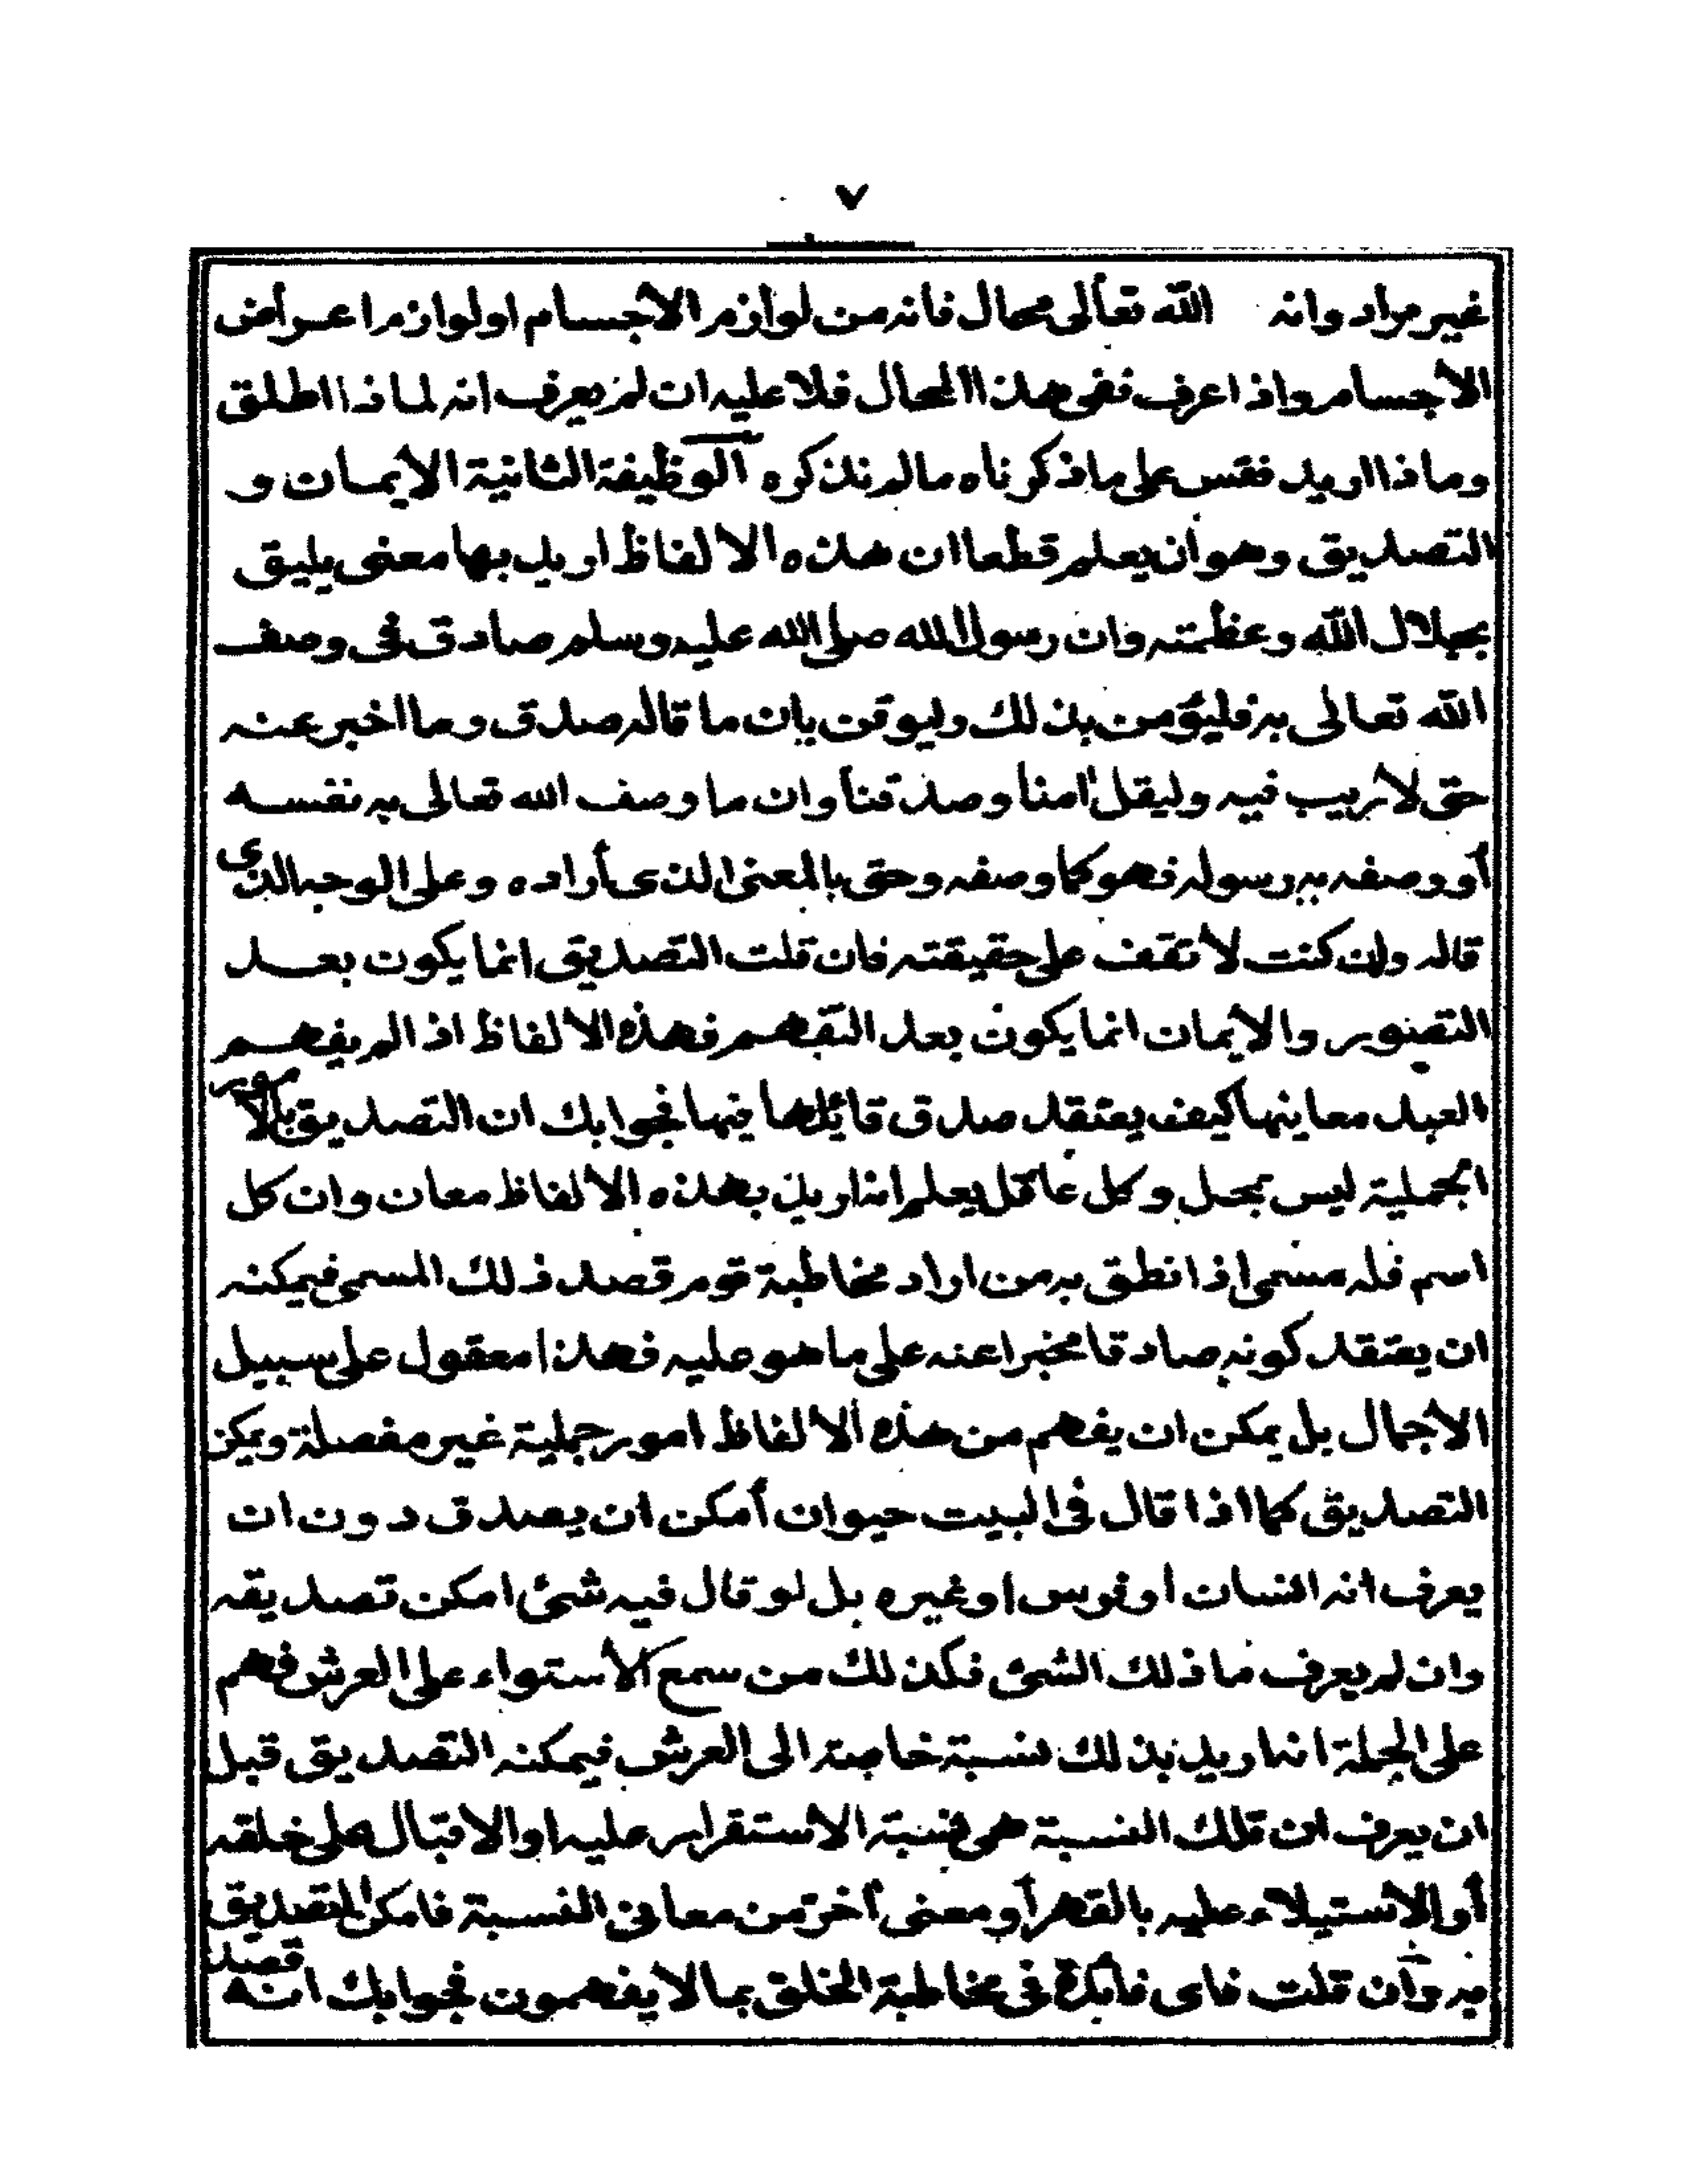 ٧
غير مراد وانه الله تعالى محال فانه من لوازم الأجسام او لوازم اعراض
الأجسام واذا عرف نفى هذا المحال فلا عليه ان لم يعرف انه لماذا اطلق
وماذا اريد فقس على ماذكرناه مالم نذكره الوظيفة الثانية الأيمان و
التصديق وهو أن يعلم قطعا ان هذه الالفاظ اريد بها معنى يليق
بجلال الله وعظمته وان رسول الله صلى الله عليه وسلم صادق فى وصف
الله تعالى به فليؤمن بذلك وليوقن بان ما قاله صدق وما اخبر عنه
حق لا ريب فيه وليقل امنا وصدقنا وان ما وصف الله تعالى به نفسه
أو وصفه به رسوله فهو كما وصفه وحق بالمعنى الذى أراده وعلى الوجه الذى
قاله وان كنت لا تقف على حقيقته فان قلت التصديق انما يكون بعد
التصوير والأيمان انما يكون بعد التفهم فهذه الالفاظ اذا لم يفهم
العبد معاينها كيف يعتقد صدق قائلها فيها فجوابك ان التصديق بالأمور
الجملية ليس بمحل وكل عاقل يعلم انه اريد بهذه الالفاظ معان وان كل
اسم فله مسمى اذا نطق به من اراد مخاطبة قوم قصد ذلك المسمى فيمكنه
ان يعتقد كونه صادقا مخبرا عنه على ما هو عليه فهذا معقول على سبيل
الأجمال بل يمكن ان يفهم من هذه الالفاظ امور جملية غير مفصلة ويمكن
التصديق كما اذا قال فى البيت حيوان أمكن ان يصدق دون ان
يعرف انه انسان او فرس او غيره بل لو قال فيه شئ امكن تصديقه
وان لم يعرف ما ذلك الشئ فكذلك من سمع الأستواء على العرش فهم
على الجملة انه اريد بذلك نسبة خاصة الى العرش فيمكنه التصديق قبل
ان يعرف ان تلك النسبة هى نسبة الاستقرار عليه او الاقبال على خلقه
أو الأستيلاء عليه بالقهر أو معنى أخر من معانى النسبة فامكن التصديق
به وأن قلت فاى فائدة فى مخاطبة الخلق بما لا يفهمون فجوابك انه قصد